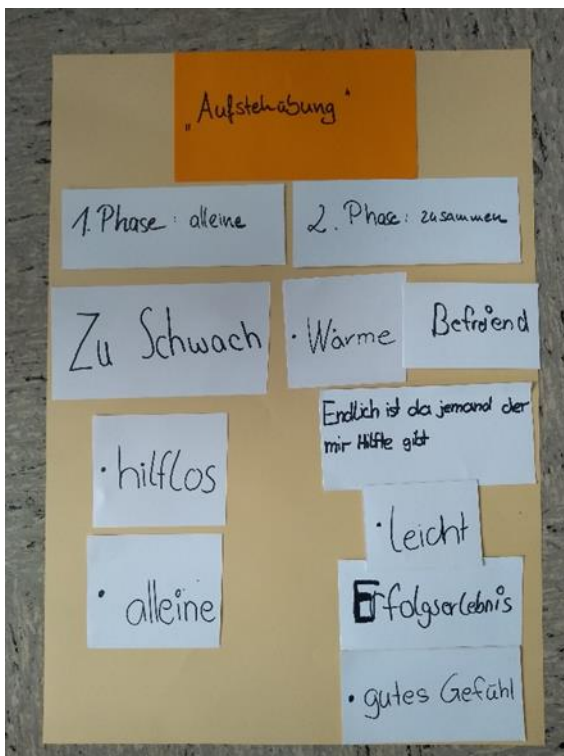 „Aufstehübung“
1. Phase: alleine
2. Phase: zusammen
Zu Schwach
• hilflos
• alleine
• Wärme
Befreiend
Endlich ist da jemand der
mir Hilfe gibt
• leicht
Erfolgserlebnis
• gutes Gefühl